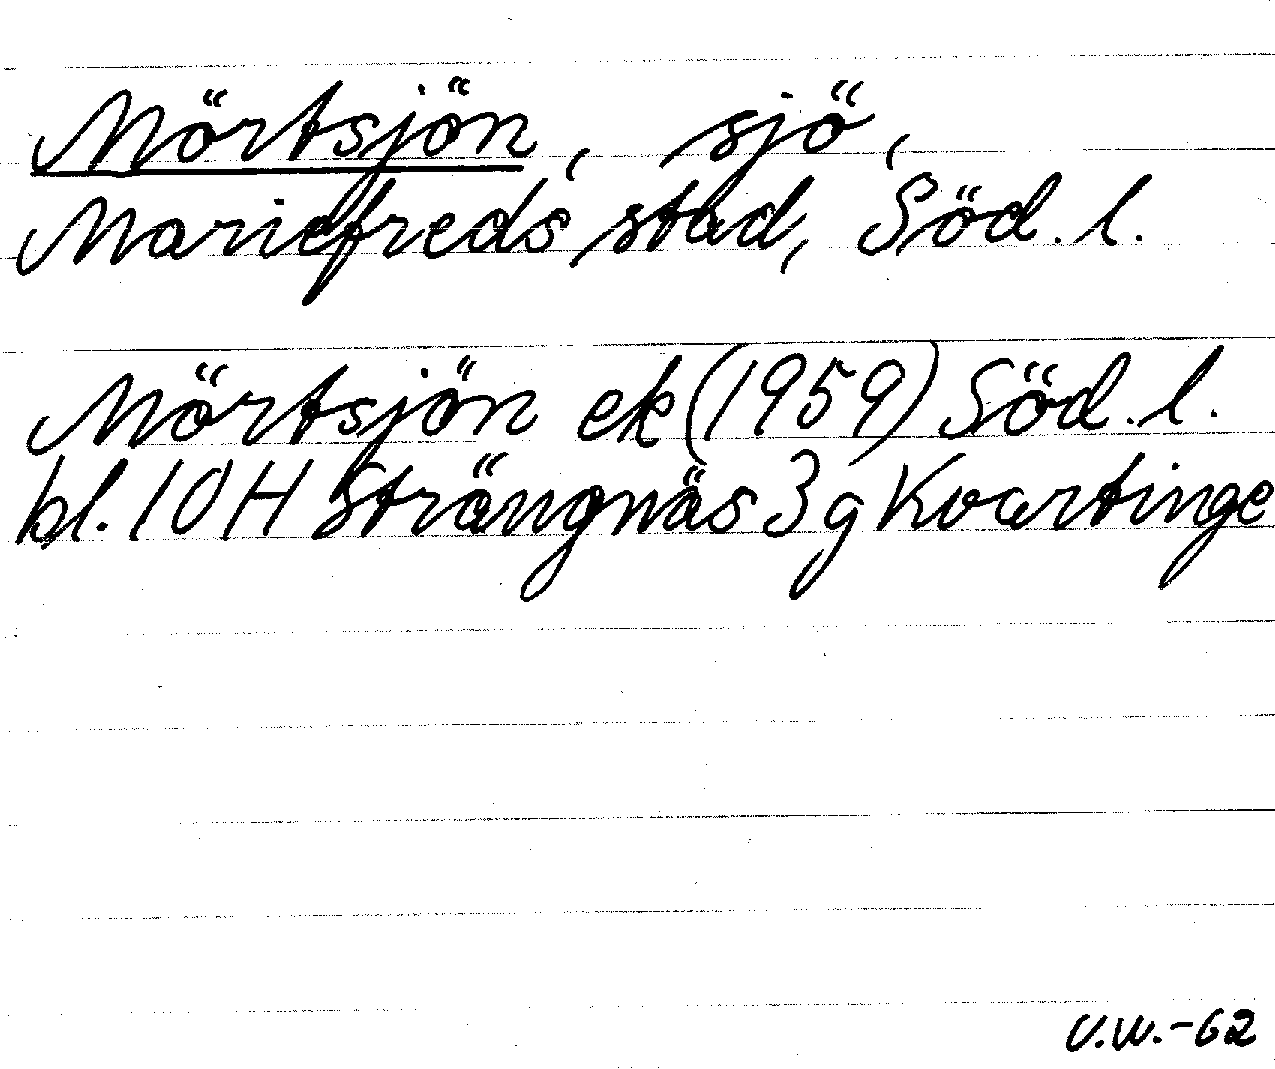 Mörtsjön, sjö,
Mariefreds stad, Söd. l.
Mörtsjön ek (1959) Söd. l.
bl. 10H Strängnäs 3g Kvartinge
V.W.-62